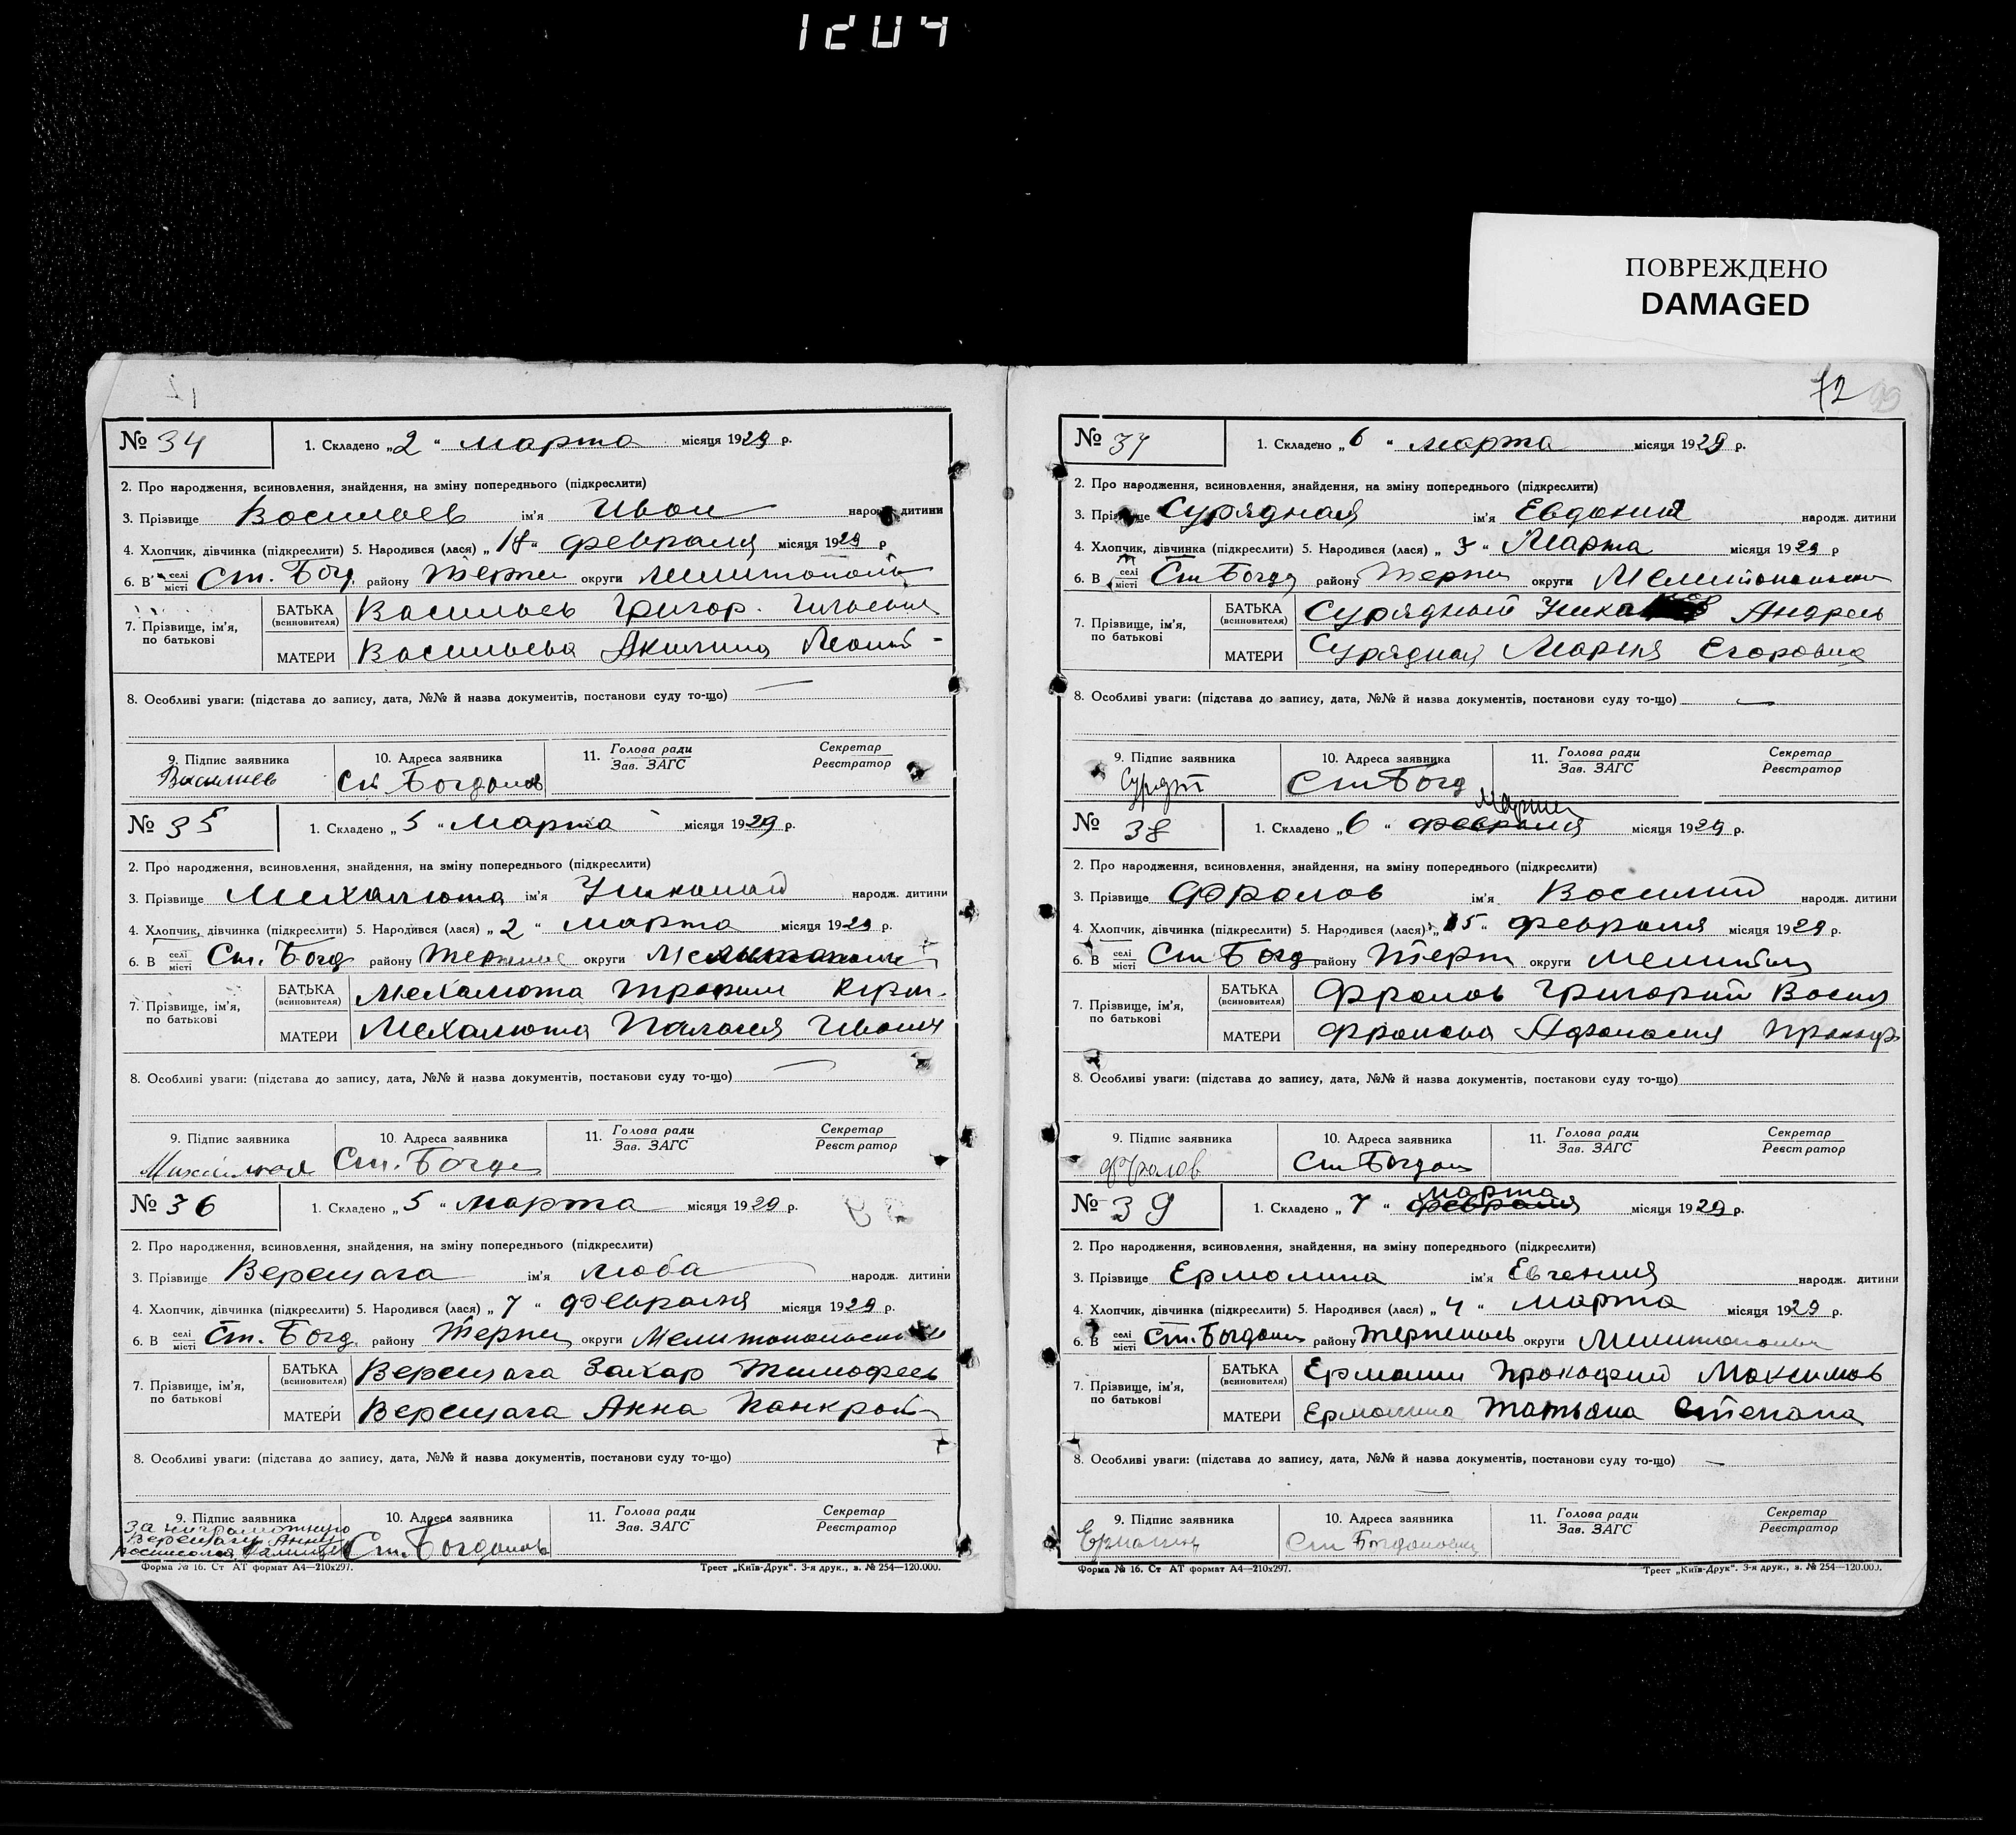 1204
ПОВРЕЖДЕНО
DAMAGED
№ 34
1. Складено „2“ марта місяця 1929 р.
2. Про народження, всиновлення, знайдення, на зміну попереднього (підкреслити)
3. Прізвище Васильев ім'я Иван народж. дитини
4. Хлопчик, дівчинка (підкреслити) 5. Народився (лася) „18“ февраля місяця 1929 р
6. В селі місті Ст. Богд. району Терпен округи
7. Прізвище, ім'я, по батькові
БАТЬКА (всиновителя) Васильев Григор.
МАТЕРИ Васильева Акилина Леонт-
8. Особливі уваги: (підстава до запису, дата, №№ й назва документів, постанови суду то-що) —
9. Підпис заявника 10. Адреса заявника 11. Голова ради Зав. ЗАГС Секретар Реєстратор
Васильев Ст Богданов
№ 35
1. Складено „5“ Марта місяця 1929 р.
2. Про народження, всиновлення, знайдення, на зміну попереднього (підкреслити)
3. Прізвище Мехалюта ім'я Николай народж. дитини
4. Хлопчик, дівчинка (підкреслити) 5. Народився (лася) „2“ марта місяця 1929 р.
6. В селі місті Ст. Богд району округи
7. Прізвище, ім'я, по батькові
БАТЬКА (всиновителя) Мехалюта Трофим
МАТЕРИ Мехалюта Палагея Ивани
8. Особливі уваги: (підстава до запису, дата, №№ й назва документів, постакови суду то-що) —
9. Підпис заявника 10. Адреса заявника 11. Голова ради Зав. ЗАГС Секретар Реєстратор
Ст. Богда
№ 36
1. Складено „5“ марта місяця 1929 р.
2. Про народження, всиновлення, знайдення, на зміну попереднього (підкреслити)
3. Прізвище Верещага ім'я Люба народж. дитини
4. Хлопчик, дівчинка (підкреслити) 5. Народився (лася) „7“ февраля місяця 1929 р.
6. В селі місті Ст. Богд. району Терпен округи
7. Прізвище, ім'я, по батькові
БАТЬКА (всиновителя) Верещага Захар Тимофеев
МАТЕРИ Верещага Анна Панкрат-
8. Особливі уваги: (підстава до запису, дата, №№ й назва документів, постанови суду то-що)
9. Підпис заявника 10. Адреса заявника 11. Голова ради Зав. ЗАГС Секретар Реєстратор
За
Верещагу Анну
Ст. Богданов
Форма № 16. Ст АТ формат А4—210х297. Трест „Київ-Друк“. 3-я друк., з. № 254—120.000.
72 99
№ 37
1. Складено „6“ марта місяця 1929 р.
2. Про народження, всиновлення, знайдення, на зміну попереднього (підкреслити)
3. Прізвище Сурядная ім'я Евдокия народж. дитини
4. Хлопчик, дівчинка (підкреслити) 5. Народився (лася) „3“ Марта місяця 1929 р
6. В селі місті Ст Богд району Терпен округи
7. Прізвище, ім'я, по батькові
БАТЬКА (всиновителя) Сурядный Андрей
МАТЕРИ Сурядная Мария Егоровна
8. Особливі уваги: (підстава до запису, дата, №№ й назва документів, постанови суду то-що) —
9. Підпис заявника 10. Адреса заявника 11. Голова ради Зав. ЗАГС Секретар Реєстратор
Ст Богд
№ 38
Марта
1. Складено „6“ февраля місяця 1929 р.
2. Про народження, всиновлення, знайдення, на зміну попереднього (підкреслити)
3. Прізвище Фролов ім'я Василий народж. дитини
4. Хлопчик, дівчинка (підкреслити) 5. Народився (лася) „15“ февраля місяця 1929 р.
6. В селі місті Ст Богд району Терп округи
7. Прізвище, ім'я, по батькові
БАТЬКА (всиновителя) Фролов Григорий Васил
МАТЕРИ Фролова Афанасия Прокоф
8. Особливі уваги: (підстава до запису, дата, №№ й назва документів, постакови суду то-що)
9. Підпис заявника 10. Адреса заявника 11. Голова ради Зав. ЗАГС Секретар Реєстратор
Фролов Ст Богдан
№ 39
марта
1. Складено „7“ февраля місяця 1929 р.
2. Про народження, всиновлення, знайдення, на зміну попереднього (підкреслити)
3. Прізвище Ермолина ім'я Евгения народж. дитини
4. Хлопчик, дівчинка (підкреслити) 5. Народився (лася) „4“ марта місяця 1929 р.
6. В селі місті Ст. Богдан району округи
7. Прізвище, ім'я, по батькові
БАТЬКА (всиновителя) Ермолин Прокофий Максимов
МАТЕРИ Ермолина Татьяна Степана
8. Особливі уваги: (підстава до запису, дата, №№ й назва документів, постанови суду то-що) —
9. Підпис заявника 10. Адреса заявника 11. Голова ради Зав. ЗАГС Секретар Реєстратор
Ермолин Ст Богдановка
Форма № 16. Ст АТ формат А4—210х297. Трест „Київ-Друк“. 3-я друк., з. № 254—120.000.